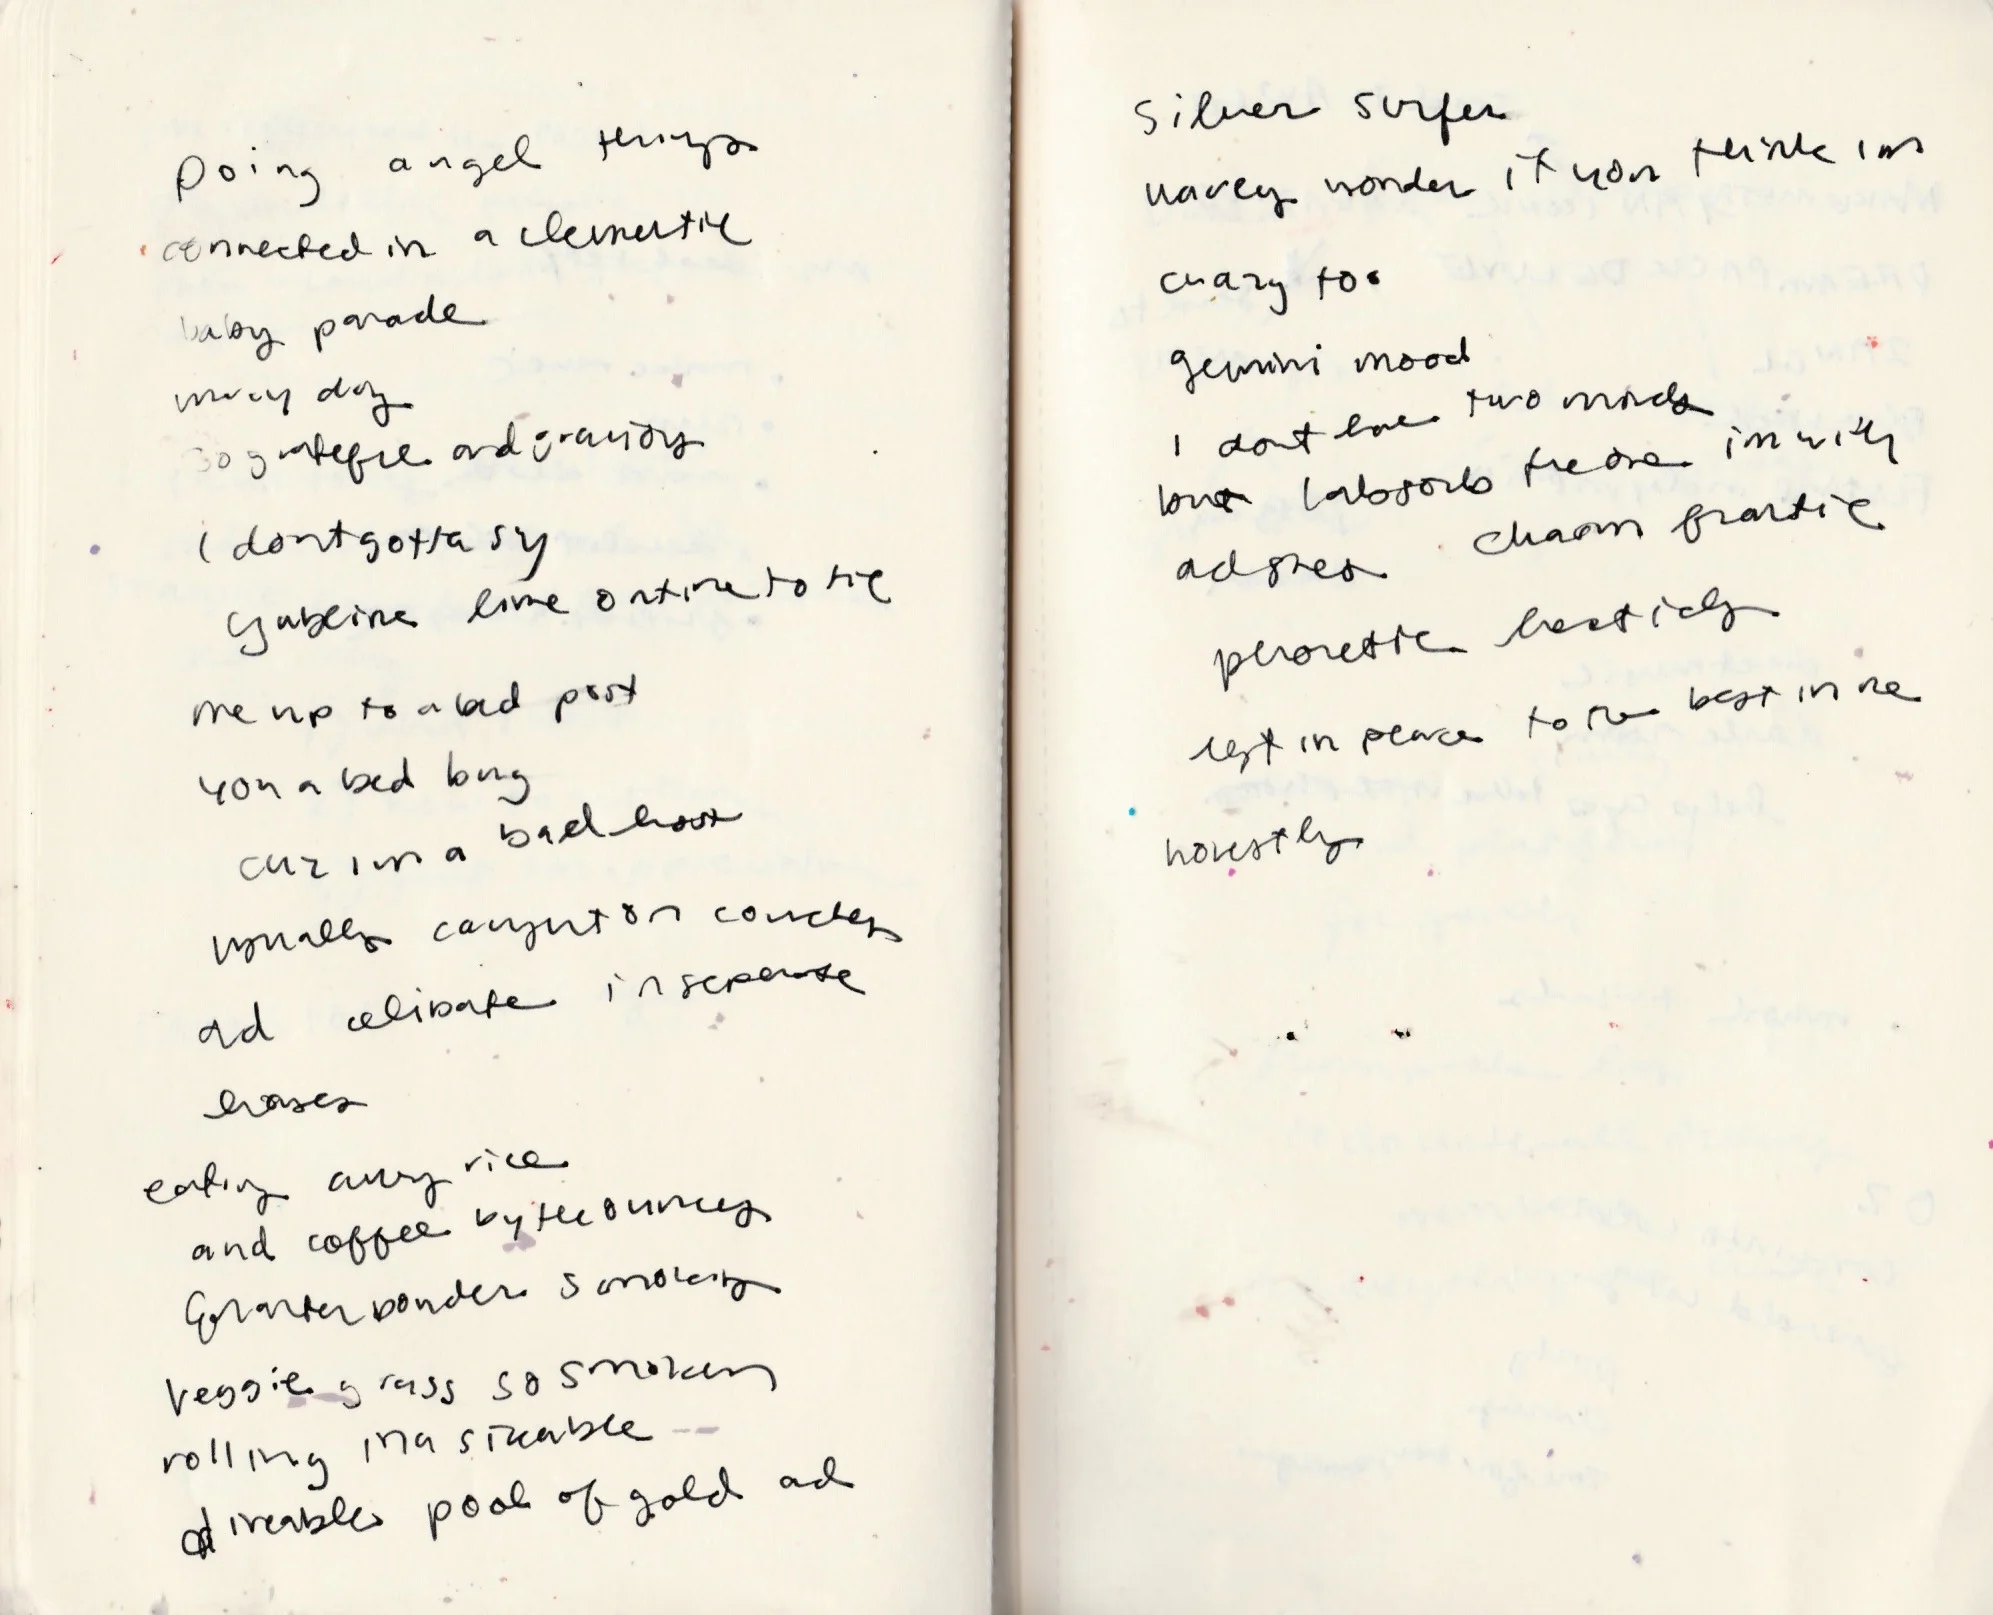 Doing angel things
connected in a clementie
baby parade
every day
so grateful and gravity
I dont gotta say
Gabeline line ontime to tie
me up to a bed post
you a bed bug
cuz im a bad host
usually caught on couches
ad celibate in seperate
houses
eating curry rice
and coffee by the ounces
Quarter pounder smoking
veggie grass so smoking
rolling in a sizeable
diveable pool of gold ad
Silver surfer
wonder if you think im
crazy too
gemini mood
I dont have two minds
but I absorb the one im with
adopted chaos frantic
phonetic hecticly
rest in peace to the best in me
honestly